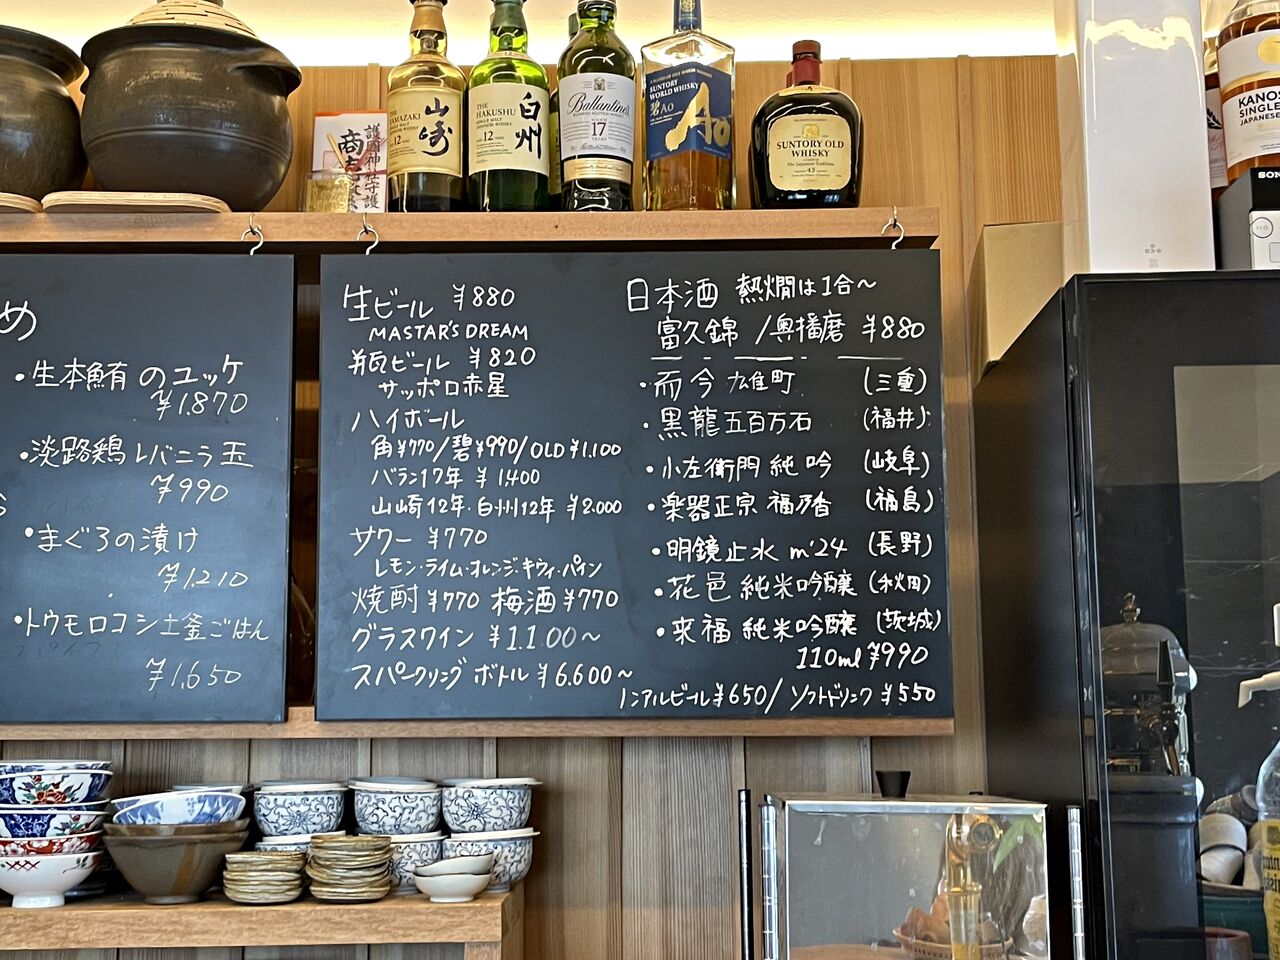 護國神社守護
THE YAMAZAKI
12
山崎
THE HAKUSHU
12
白州
Ballantine's
17
SUNTORY WORLD WHISKY
碧Ao
Ao
SUNTORY OLD WHISKY
43
KANOS
SINGLE
JAPANESE
SON
め
・生本鮪のユッケ
¥1.870
・淡路鶏レバニラ玉
¥990
・まぐろの漬け
¥1.210
・トウモロコシ土釜ごはん
¥1.650
生ビール ¥880
MASTAR'S DREAM
瓶ビール ¥820
サッポロ赤星
ハイボール
角¥770/碧¥990/OLD¥1.100
バラン17年 ¥1,400
山崎12年・白州12年 ¥2.000
サワー ¥770
レモン・ライム・オレンジ・キウイ・パイン
焼酎¥770 梅酒¥770
グラスワイン ¥1.100〜
スパークリング ボトル ¥6.600〜
日本酒 熱燗は1合〜
富久錦/奥播磨 ¥880
・而今 (三重)
・黒龍 五百万石 (福井)
・小左衛門 純吟 (岐阜)
・楽器正宗 福乃香 (福島)
・明鏡止水 m'24 (長野)
・花邑 純米吟醸 (秋田)
・来福 純米吟醸 (茨城)
110ml ¥990
ノンアルビール¥650/ソフトドリンク¥550